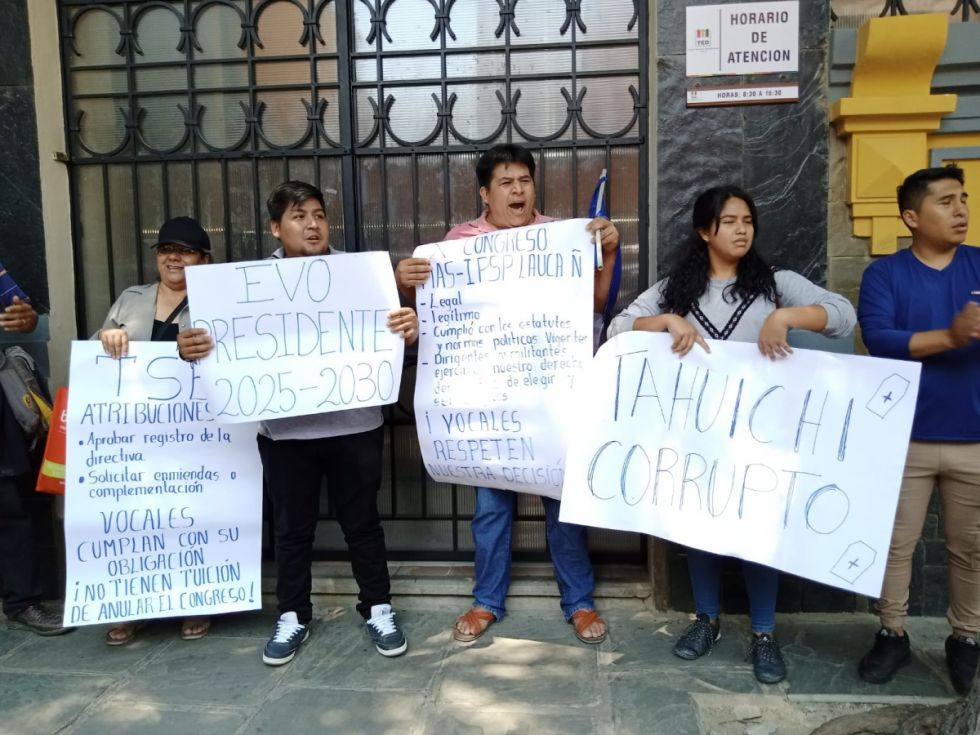 HORARIO
DE
ATENCION
TED
HORAS: 8:30 A 16:30
TSE
ATRIBUCIONES
• Aprobar registro de la
directiva
• Solicitar enmiendas o
complementación
VOCALES
CUMPLAN CON SU
OBLIGACIÓN
¡NO TIENEN TUICIÓN
DE ANULAR EL CONGRESO!
EVO
PRESIDENTE
2025-2030
CONGRESO
MAS-IPSP LAUCA Ñ
- Legal
- legítimo
- Cumplió con los estatutos
y normas políticas Vigentes
- Dirigentes y militantes
ejerció nuestro derecho
de elegir y
¡ VOCALES
RESPETEN
NUESTRA DECISIÓN
TAHUICHI
CORRUPTO